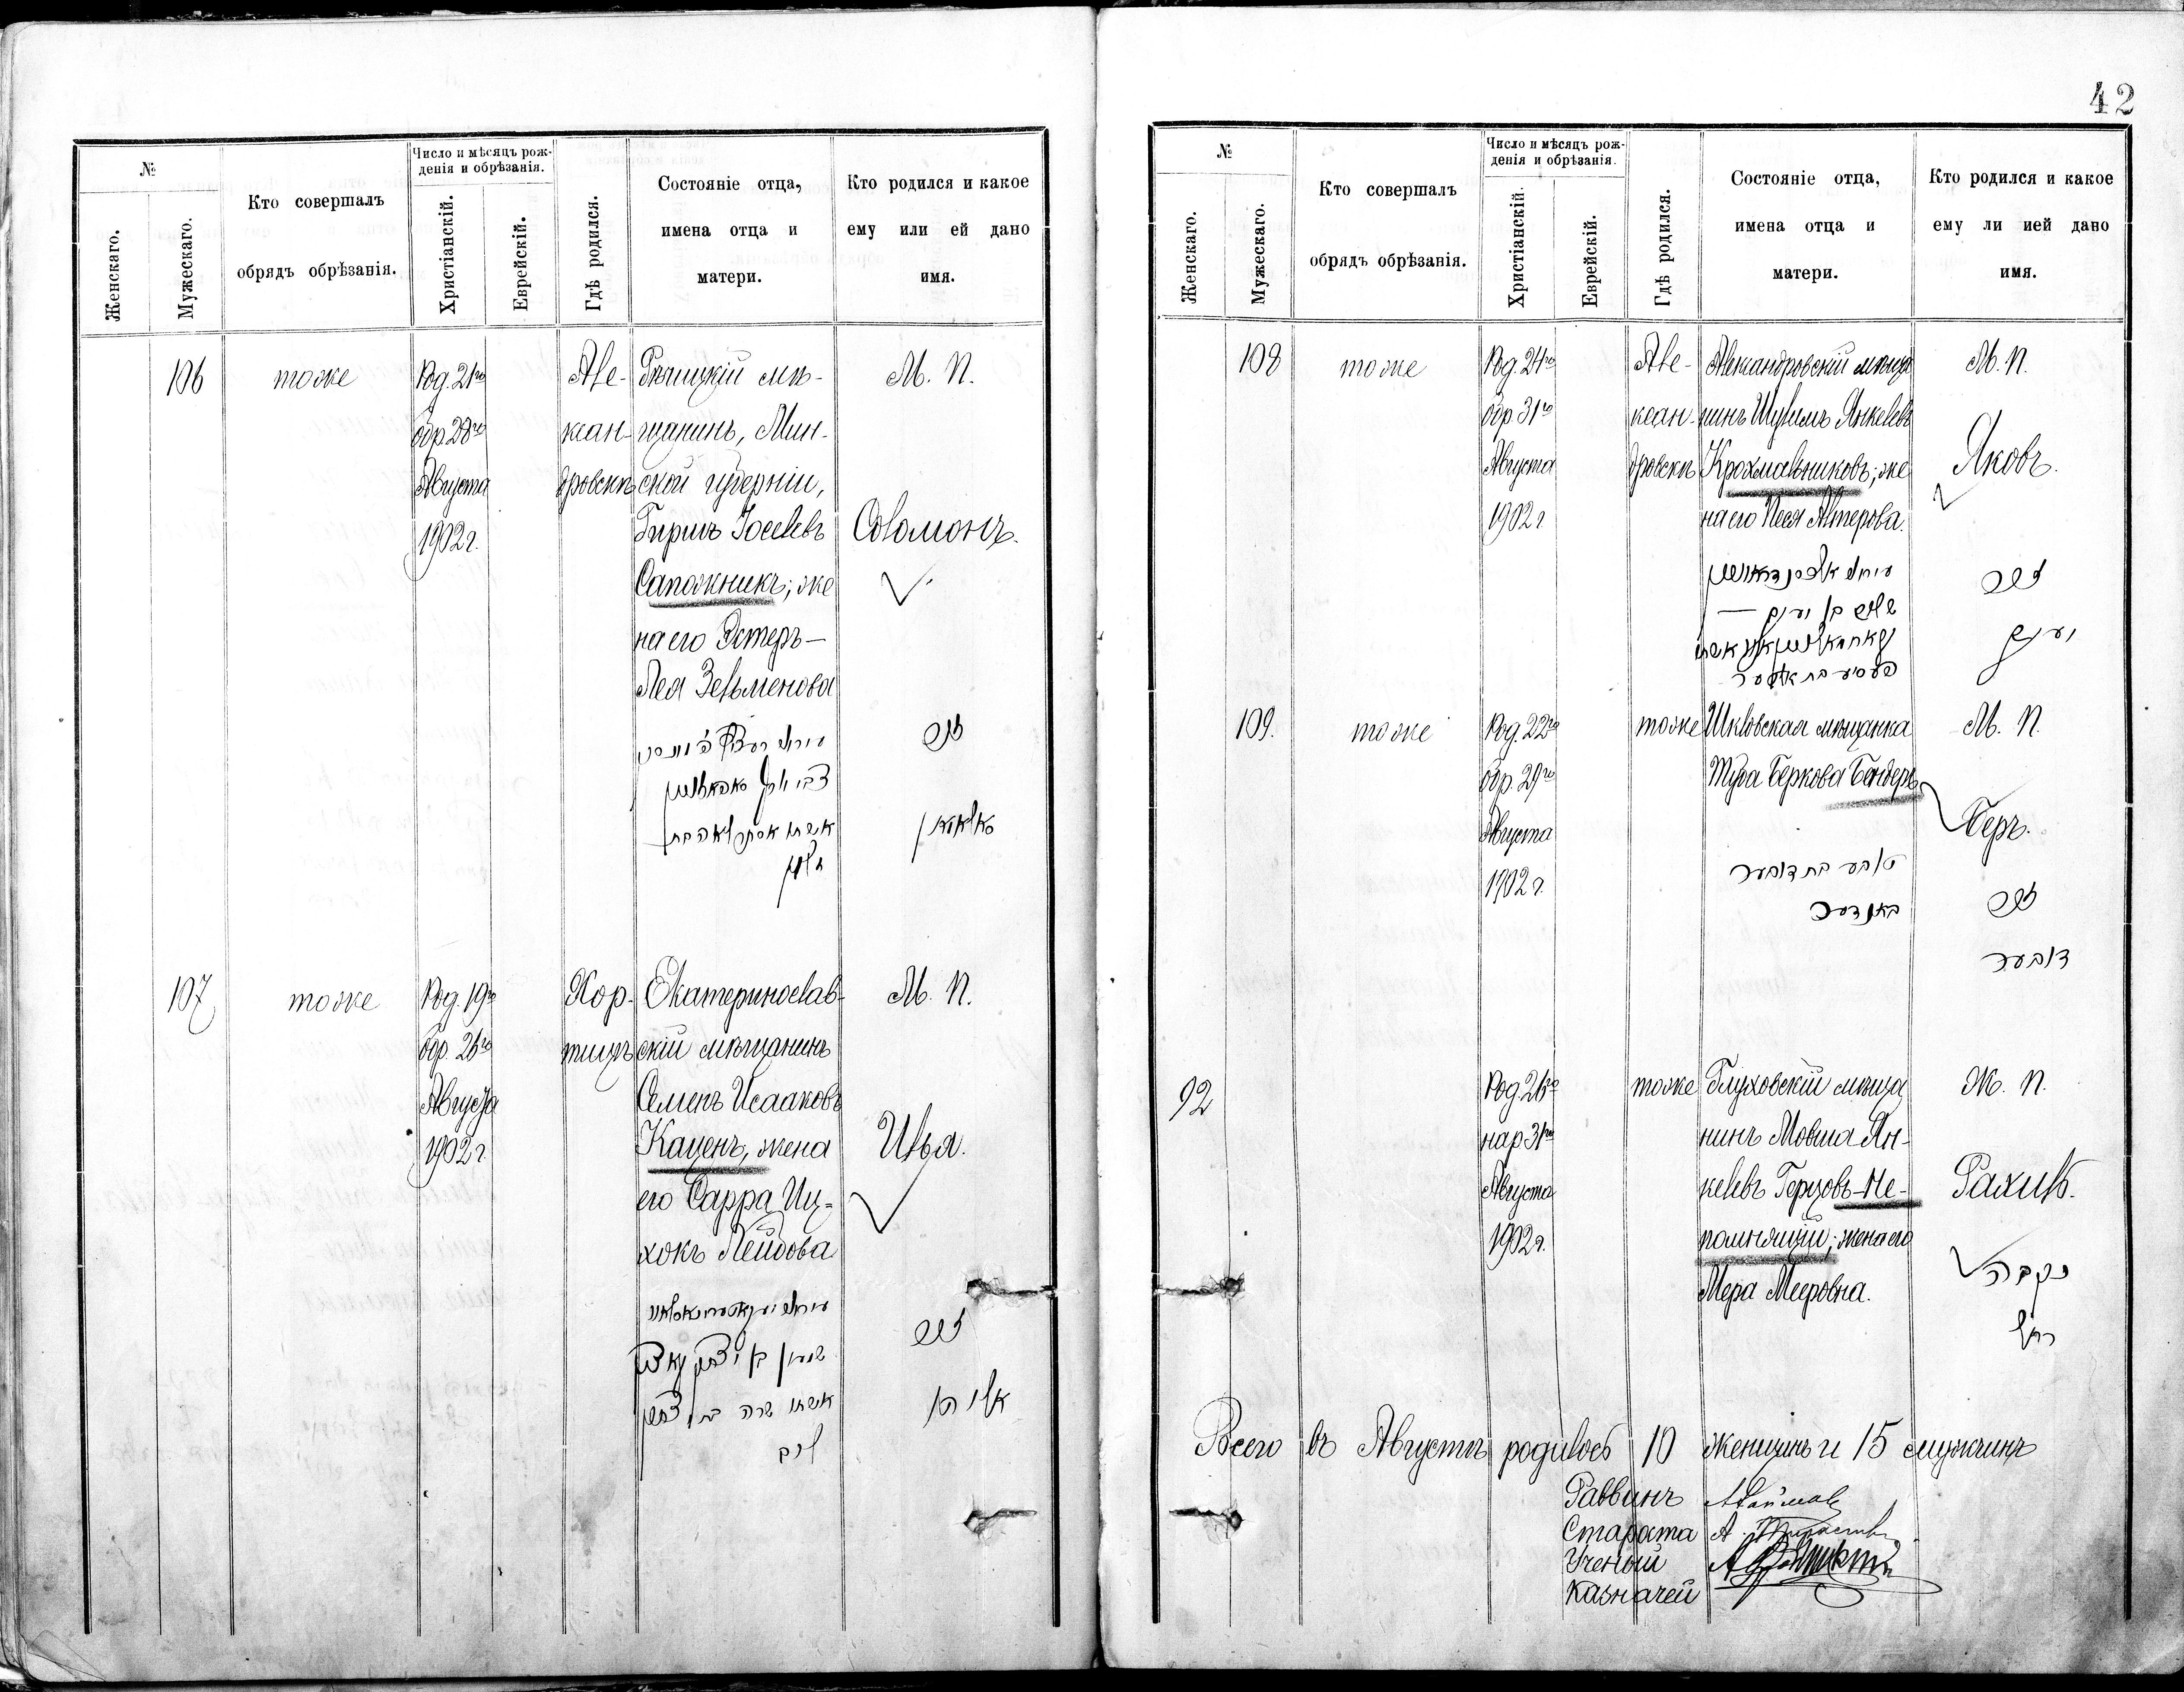 №
Женскаго.
Мужескаго.
Кто совершалъ
обрядъ обрѣзанія.
Число и мѣсяцъ рож-
денія и обрѣзанія.
Христіанскій.
Еврейскій.
Гдѣ родился.
Состояніе отца,
имена отца и
матери.
Кто родился и какое
ему или ей дано
имя.
106
тоже
Род. 21го
обр. 28го
Августа
1902 г.
Але-
ксан-
дровскъ
Рѣчицкій мѣ-
щанинъ, Мин-
ской губерніи,
Гиршъ Іоселевъ
Сапожникъ; же
на его Эстеръ—
Лея Зельменова
М. П.
Соломонъ.
זכר
107
тоже
Род. 19го
обр. 26го
Августа
1902 г.
Хор-
тицъ
Екатеринослав-
скій мѣщанинъ
Семенъ Исааковъ
Каценъ, жена
его Сарра Иц-
хокъ Лейбова
שמעון בן יצחק
אשתו שרה בת יצחק
ליב
М. П.
Илья.
זכר
אליהו
42
№
Женскаго.
Мужескаго.
Кто совершалъ
обрядъ обрѣзанія.
Число и мѣсяцъ рож-
денія и обрѣзанія.
Христіанскій.
Еврейскій.
Гдѣ родился.
Состояніе отца,
имена отца и
матери.
Кто родился и какое
ему ли ией дано
имя.
108
тоже
Род. 24го
обр. 31го
Августа
1902 г.
Але-
ксан-
дровскъ
Александровскій мѣща
нинъ Шулимъ Янкелевъ
Крохмальниковъ; же
на его Песя Алтерова.
פעסיע בת אלטער
М. П.
Яковъ.
זכר
יעקב
109.
тоже
Род. 22го
обр. 29го
Августа
1902 г.
тоже
Шкловская мѣщанка
Туба Беркова Бендеръ
טובע בת דובער
בענדער
М. П.
Беръ.
זכר
דובער
92
Род. 26го
нар. 31го
Августа
1902 г.
тоже
Глуховскій мѣща
нинъ Мовша Ян-
келевъ Герцовъ-Не-
помнящій; жена его
Мера Мееровна.
Ж. П.
Рахиль.
נקבה
רחל
Всего въ Августѣ родилось 10 женщинъ и 15 мужчинъ
Раввинъ
Староста
Ученый
Казначей